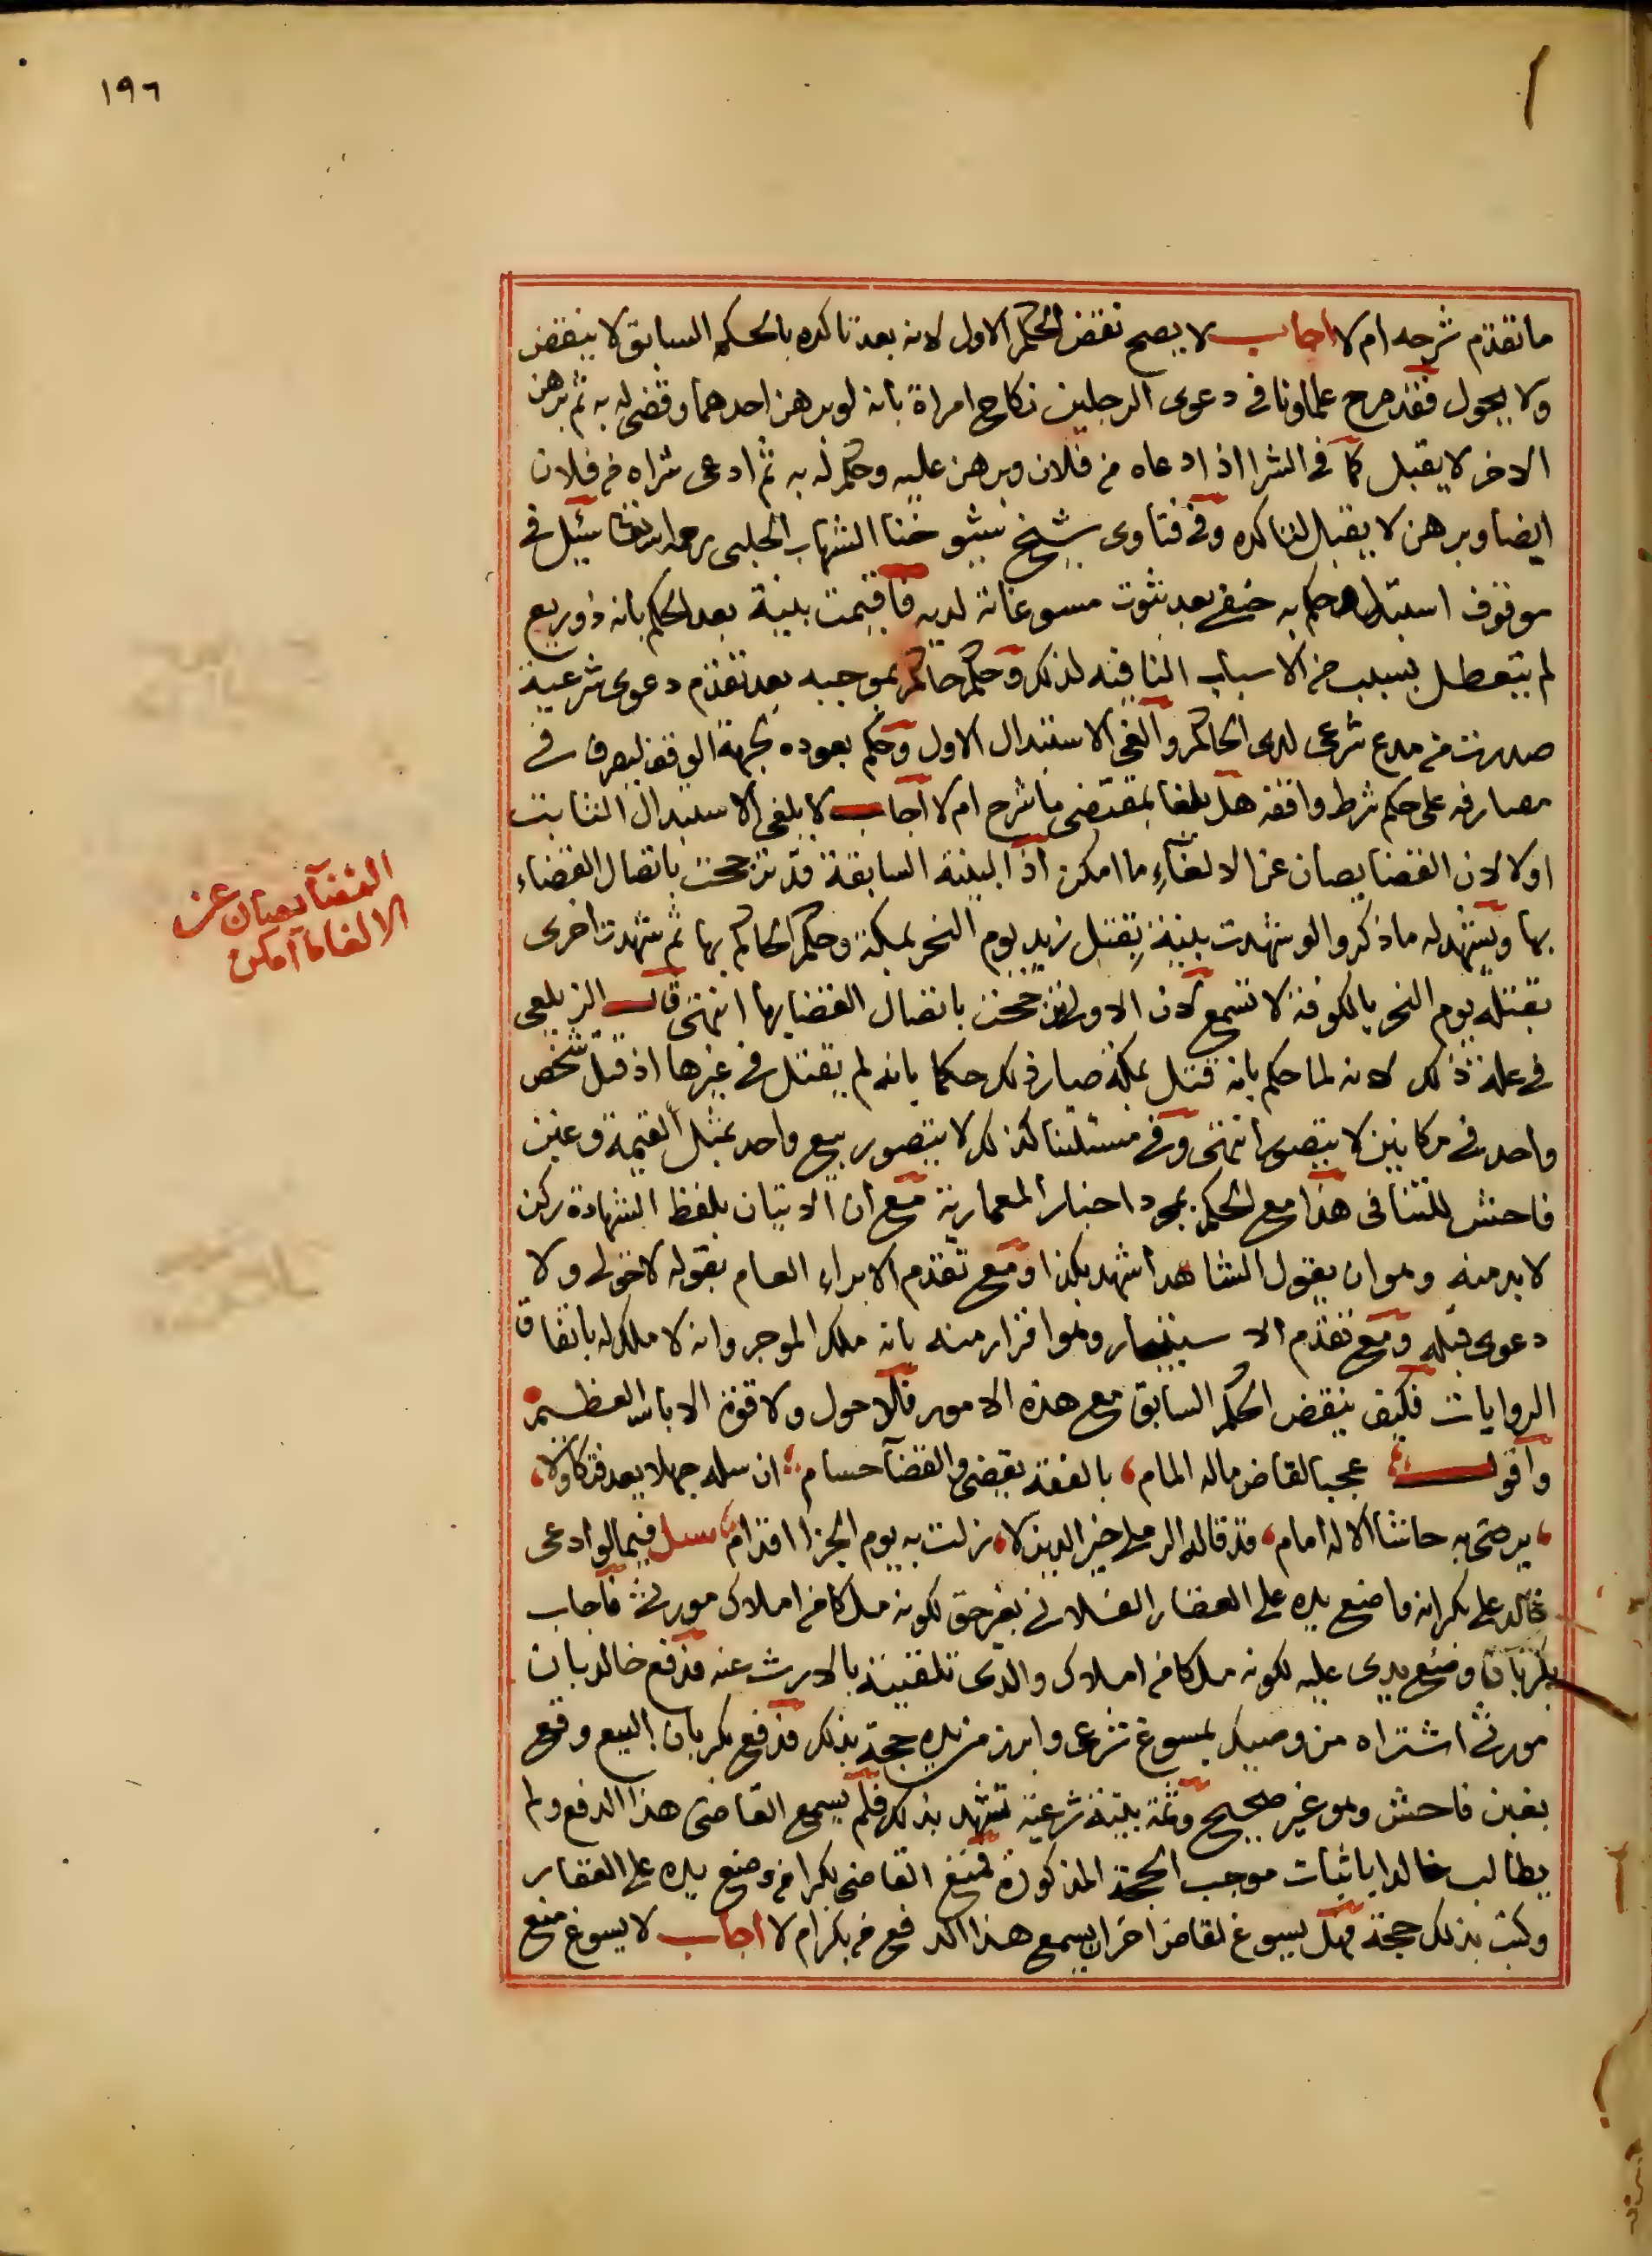 ١٩٦
ما تقدم شرحه ام لا اجاب لا يصح نقض الحكم الاول لانه بعد تاكده بالحكم السابق لا ينقض
ولا يحول فقد صرح علماونا في دعوى الرجلين نكاح امراة بانه لو برهن احدهما وقضى له به ثم برهن
الاخر لا يقبل كما في الشرا اذا ادعاه من فلان وبرهن عليه وحكم له به ثم ادعى شراه من فلان
ايضا وبرهن لا يقبل لتاكده وفي فتاوى شيخ شيوخنا الشهاب الحلبي رحمه الله تعالى سئل في
موقوف استبدل وحكم به حنفي بعد ثبوت مسوغاته لديه فاقيمت بينة بعد الحكم بانه ذو ريع
لم يتعطل بسبب من الاسباب النافية لذلك وحكم حاكم بموجبه بعد تقدم دعوى شرعية
صدرت من مدع شرعي لدى الحاكم والغى الاستبدال الاول وحكم بعوده لجهة الوقف ليصرف في
مصارفه على حكم شرط واقفه هل يلغا بمقتضى ما شرح ام لا اجاب لا يلغى الاستبدال الثابت
اولا لان القضا يصان عن الالغاء ما امكن اذ البينة السابقة قد ترجحت باتصال القضاء
بها ويشهد له ما ذكروا لو شهدت بينة بقتل زيد يوم النحر بمكة وحكم الحاكم بها ثم شهدت اخرى
بقتله يوم النحر بالكوفة لا تسمع لان الاولى ترجحت باتصال القضا بها انتهى قال الزيلعي
في علة ذلك لانه لما حكم بانه قتل بمكة صار ذلك حكما بانه لم يقتل في غيرها اذ قتل شخص
واحد في مكانين لا يتصور انتهى وفي مسئلتنا كذلك لا يتصور بيع واحد بمثل القيمة وغبن
فاحش للتنافى هذا مع الحكم بمجرد اخبار المعمارية مع ان الاتيان بلفظ الشهادة ركن
لا بد منه وهو ان يقول الشاهد اشهد بكذا ومع تقدم الابراء العام بقوله لا حق لي ولا
دعوى قبله ومع تقدم الاستيجار وهو اقرار منه بانه ملك الموجر وانه لا ملك له باتفاق
الروايات فكيف ينقض الحكم السابق مع هذه الامور فلا حول ولا قوة الا بالله العظيم
واقول عجبا لقاض ماله المام، بالفقه يقضي والقضآ حسام ان سله جهلا بعد فتكا ولا،
، يرضى به حاشا الاله امام، قد قاله الرملي خير الدين لا، زلت به يوم الجزا اقدام سئل فيما لو ادعى
خالد على بكر انه واضع يده على العقار الفلاني بغير حق لكونه ملكا من املاك مورثي فاجاب
بكر بان وضع يدي عليه لكونه ملكا من املاك والدي تلقيته بالارث عنه فدفع خالد بان
مورثي اشتراه من وصيك بمسوغ شرعي وابرز من يده حجة بذلك فدفع بكر بان البيع وقع
بغبن فاحش وهو غير صحيح وثمة بينة شرعية تشهد بذلك فلم يسمع القاضي هذا الدفع ولم
يطالب خالدا باثبات موجب الحجة المذكورة فمنع القاضي بكرا من وضع يده على العقار
وكتب بذلك حجة فهل يسوغ لقاض اخر ان يسمع هذا الدفع من بكر ام لا اجاب لا يسوغ منع
القضآ يصان عن
الالغا ما امكن